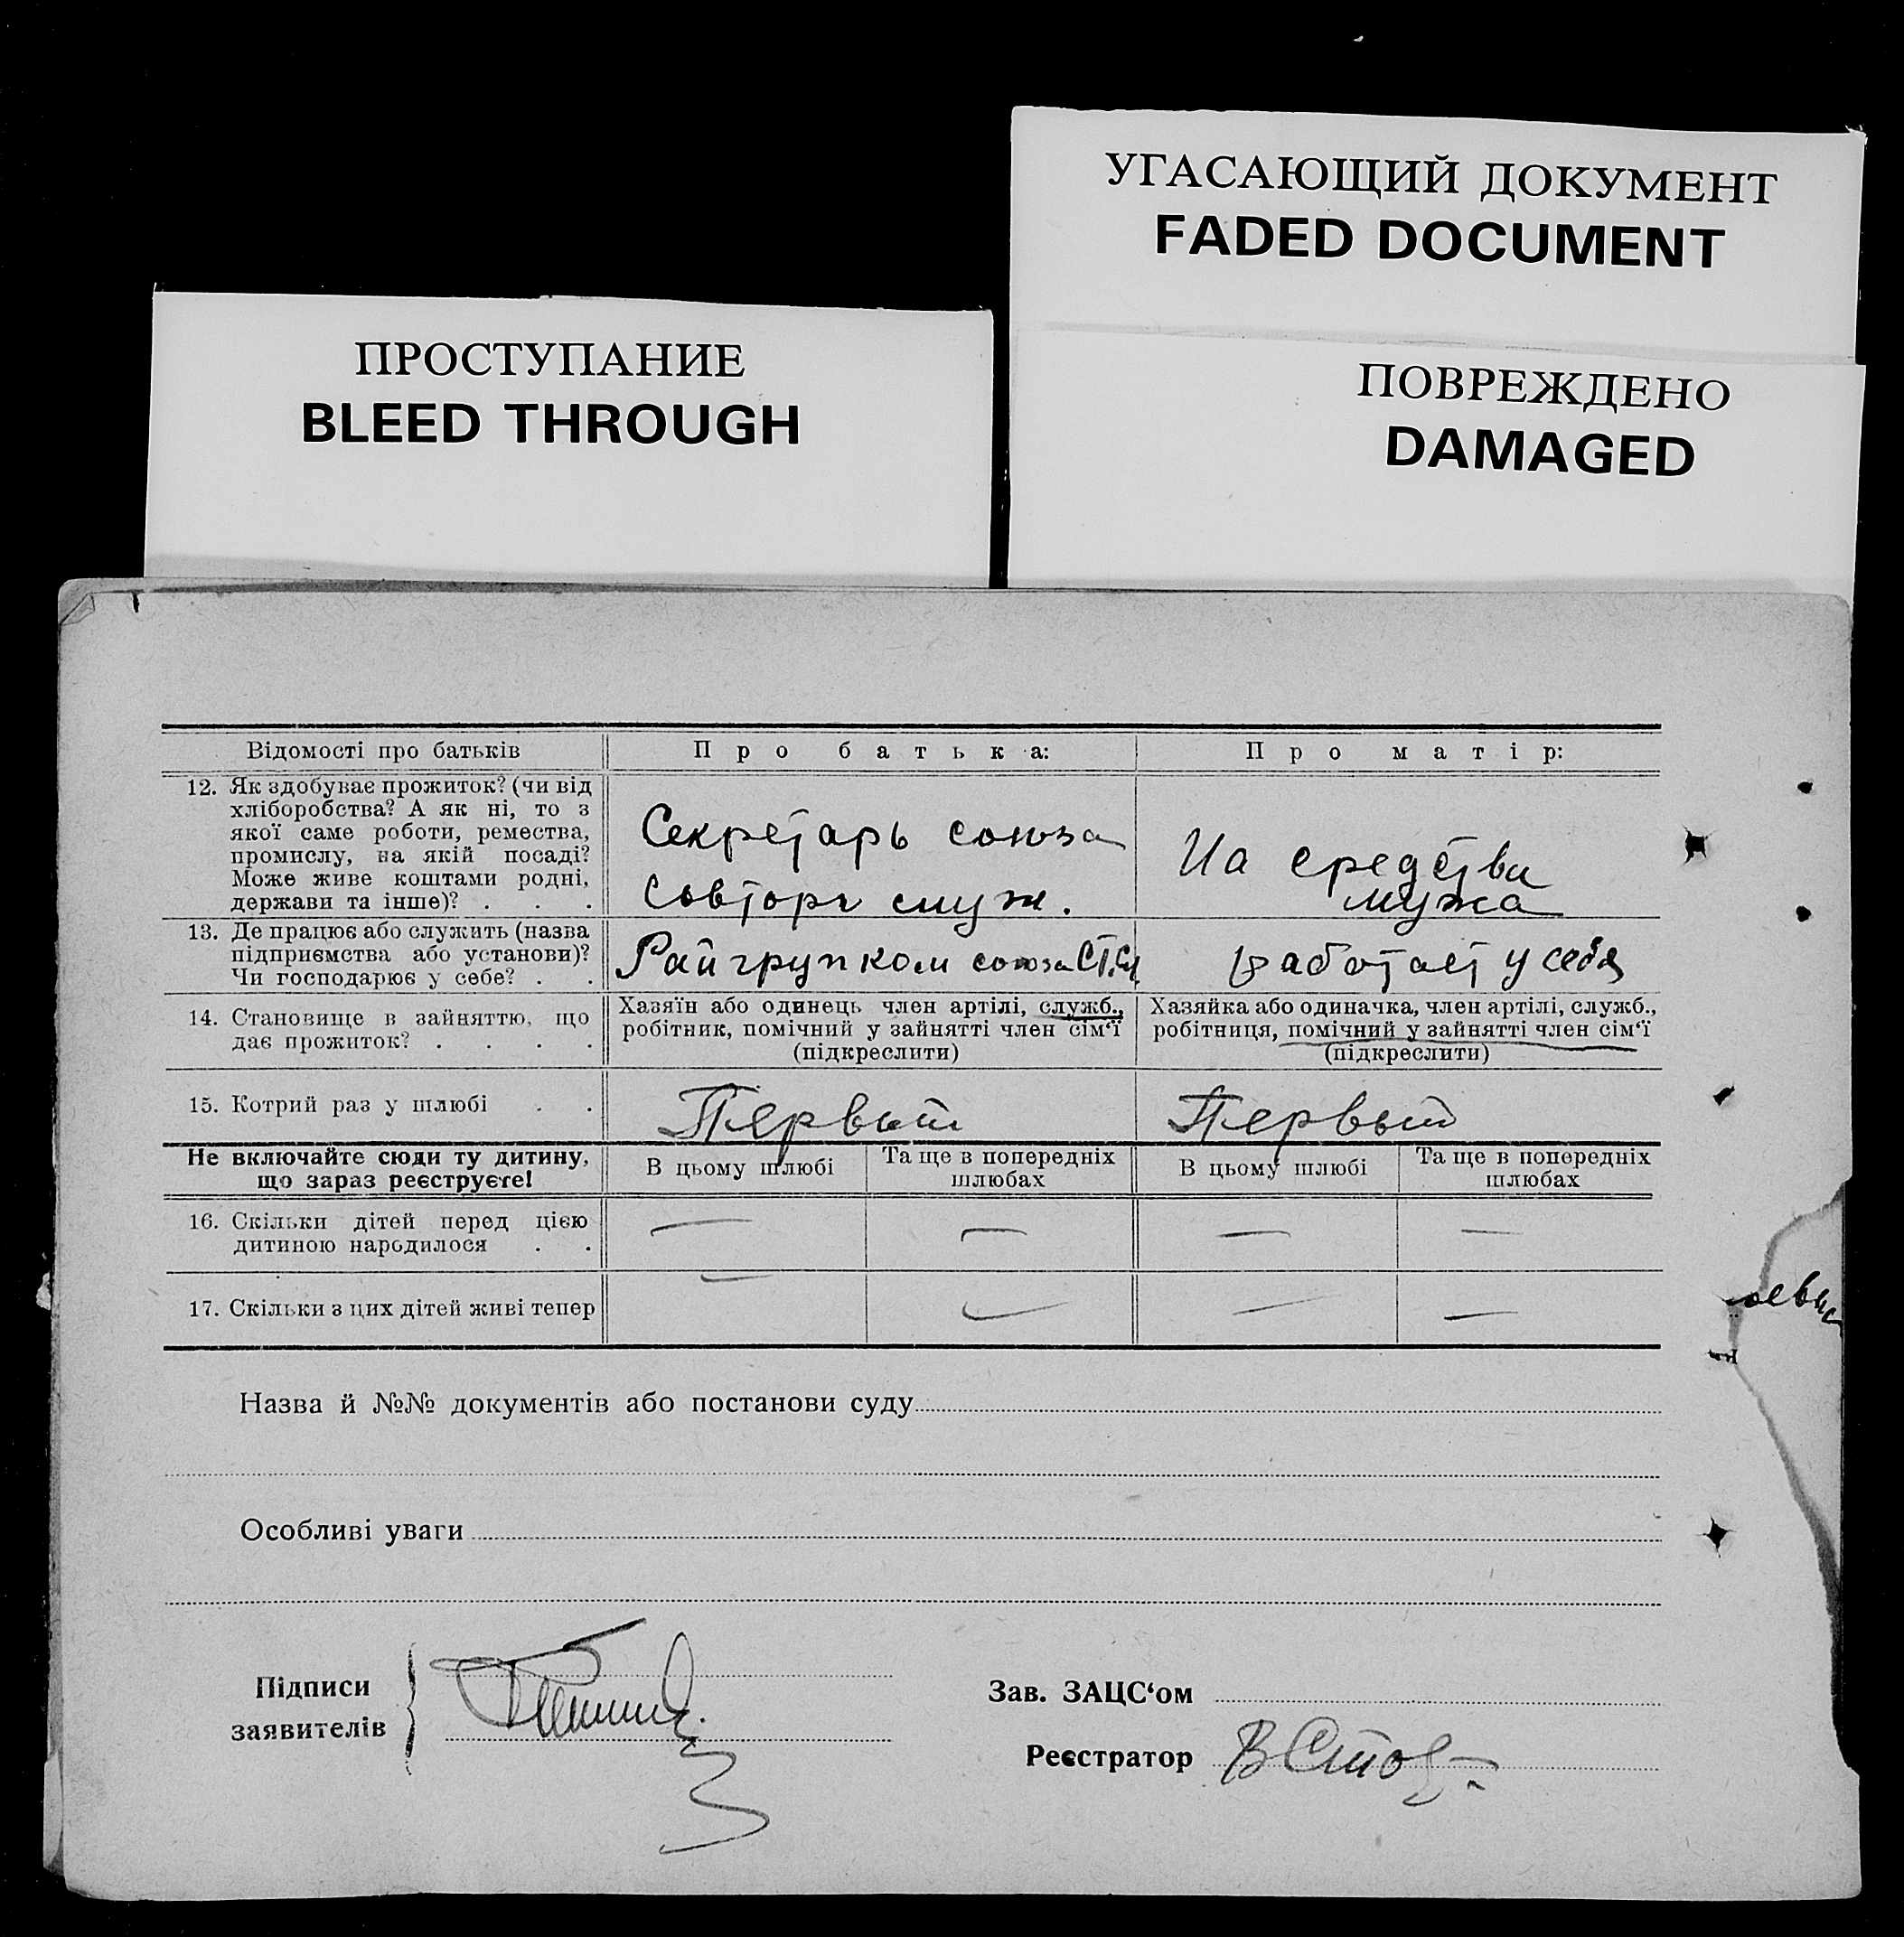 УГАСАЮЩИЙ ДОКУМЕНТ
FADED DOCUMENT
ПРОСТУПАНИЕ
BLEED THROUGH
ПОВРЕЖДЕНО
DAMAGED
Відомості про батьків
Про батька:
Про матір:
12. Як здобуває прожиток? (чи від
хліборобства? А як ні, то з
якої саме роботи, ремества,
промислу, на якій посаді?
Може живе коштами родні,
держави та інше)? . . .
Секретарь союза
Совторг служ.
На средства
мужа
13. Де працює або служить (назва
підприємства або установи)?
Чи господарює у себе? . .
Райгрупком союза
работает у себя
14. Становище в зайняттю, що
дає прожиток? . . . .
Хазяїн або одинець член артілі, служб.,
робітник, помічний у зайнятті член сім‘ї
(підкреслити)
Хазяйка або одиначка, член артілі, служб.,
робітниця, помічний у зайнятті член сім‘ї
(підкреслити)
15. Котрий раз у шлюбі . .
Первый
Первый
Не включайте сюди ту дитину,
що зараз реєструєте!
В цьому шлюбі
Та ще в попередніх
шлюбах
В цьому шлюбі
Та ще в попередніх
шлюбах
16. Скільки дітей перед цією
дитиною народилося . .
— — — —
17. Скільки з цих дітей живі тепер
— — — —
Назва й №№ документів або постанови суду
Особливі уваги
Підписи
заявителів
Зав. ЗАЦС‘ом
Реєстратор